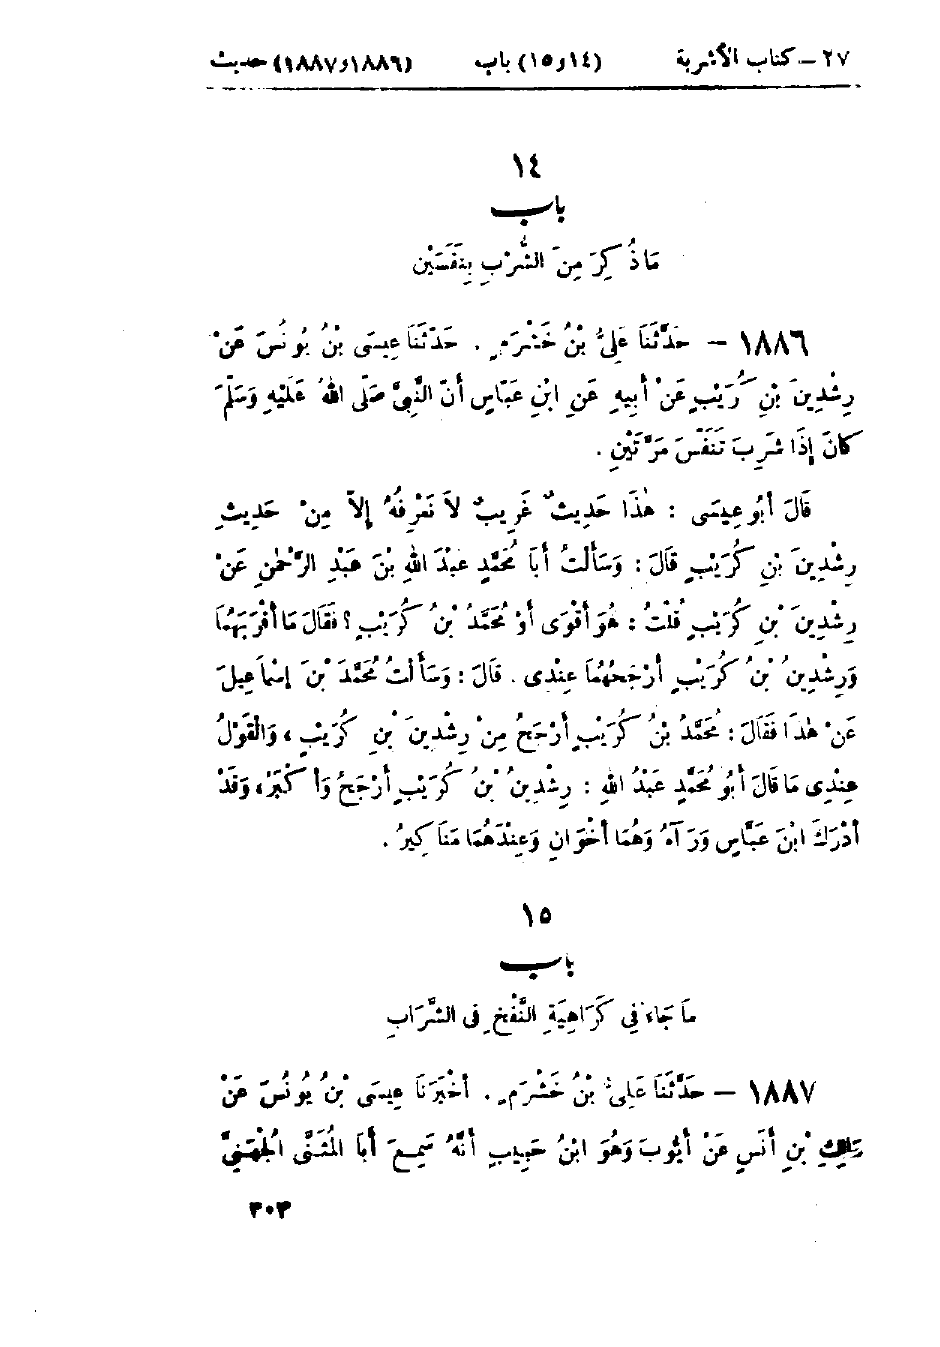 ٢٧ – كتاب الأشربة (١٤ و١٥) باب (١٨٨٦ و١٨٨٧) حديث
١٤
باب
مَاذُكِرَ مِنَ الشُّرْبِ بِنَفَسَيْنِ
١٨٨٦ – حَدَّثَنَا عَلِيُّ بْنُ خَشْرَمٍ . حَدَّثَنَا عِيسَى بْنُ يُونُسَ عَنْ
رِشْدِينَ بْنِ كُرَيْبٍ عَنْ أَبِيهِ عَنِ ابْنِ عَبَّاسٍ أَنَّ النَّبِيَّ صَلَّى اللهُ عَلَيْهِ وَسَلَّمَ
كَانَ إِذَا شَرِبَ تَنَفَّسَ مَرَّتَيْنِ .
قَالَ أَبُو عِيسَى : هٰذَا حَدِيثٌ غَرِيبٌ لاَ نَعْرِفُهُ إِلاَّ مِنْ حَدِيثِ
رِشْدِينَ بْنِ كُرَيْبٍ قَالَ : وَسَأَلْتُ أَبَا مُحَمَّدٍ عَبْدَ اللهِ بْنَ عَبْدِ الرَّحْمٰنِ عَنْ
رِشْدِينَ بْنِ كُرَيْبٍ قُلْتُ : هُوَ أَقْوَى أَوْ مُحَمَّدُ بْنُ كُرَيْبٍ ؟ فَقَالَ مَا أَقْرَبَهُمَا
وَرِشْدِينُ بْنُ كُرَيْبٍ أَرْجَحُهُمَا عِنْدِى . قَالَ : وَسَأَلْتُ مُحَمَّدَ بْنَ إِسْمَاعِيلَ
عَنْ هٰذَا فَقَالَ : مُحَمَّدُ بْنُ كُرَيْبٍ أَرْجَحُ مِنْ رِشْدِينَ بْنِ كُرَيْبٍ ، وَالْقَوْلُ
عِنْدِى مَا قَالَ أَبُو مُحَمَّدٍ عَبْدُ اللهِ : رِشْدِينُ بْنُ كُرَيْبٍ أَرْجَحُ وَأَكْبَرُ، وَقَدْ
أَدْرَكَ ابْنَ عَبَّاسٍ وَرَآهُ وَهُمَا أَخَوَانِ وَعِنْدَهُمَا مَنَاكِيرُ .
١٥
باب
مَا جَاءَ فِي كَرَاهِيَةِ النَّفْخِ فِى الشَّرَابِ
١٨٨٧ – حَدَّثَنَا عَلِيُّ بْنُ خَشْرَمٍ . أَخْبَرَنَا عِيسَى بْنُ يُونُسَ عَنْ
مَالِكِ بْنِ أَنَسٍ عَنْ أَيُّوبَ وَهُوَ ابْنُ حَبِيبٍ أَنَّهُ سَمِعَ أَبَا الْمُثَنَّى الْجُهَنِيَّ
٣٠٣